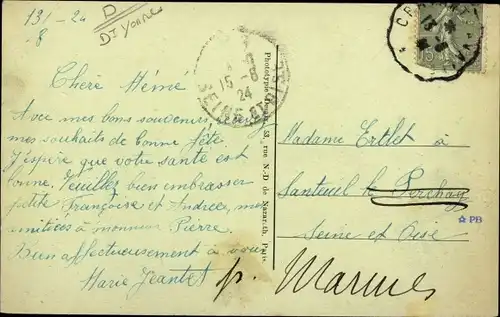 131-24
-8
D
Dt Yonne
Chère Mémé
Avec mes bons souvenirs,
mes souhaits de bonne fête.
J'espère que votre santé est
bonne. Veuillez bien embrasser
petite Françoise et Andrée, mes
amitiés à monsieur Pierre.
Bien affectueusement à vous
Marie Jeantet
15-8
24
SEINE ET OISE
Phototypie
N.-D. de Nazareth, Paris
15
Madame Ertlet à
Santeuil le Perchay
Seine et Oise
☆ PB
p. Marines